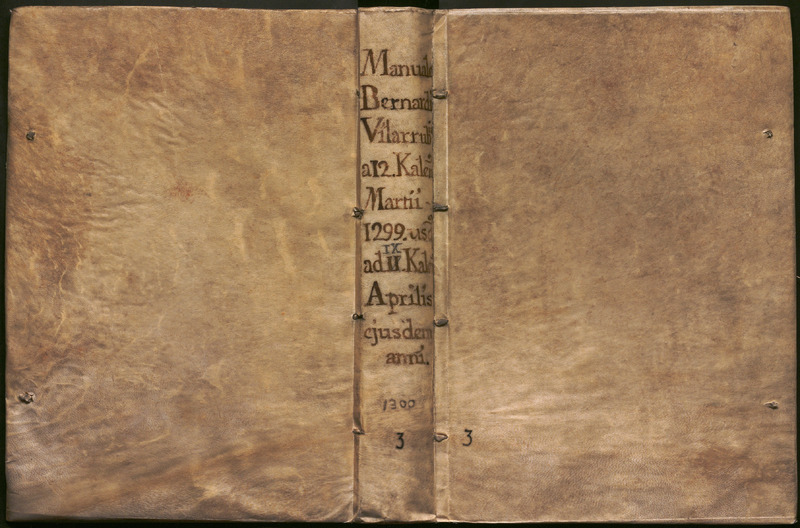 Manuale
Bernardi
Vilarrubi
a 12. Kalen
Martii
1299. us
IX
ad II. Kal
Aprilis
ejusdem
anni.
1300
3
3